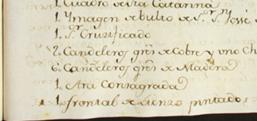 1. Quadro de Sta Catarina
1. Ymagen de bulto de S.r S.n José
1. S.r Cruzificado
2. Candeleros grs de Cobre y uno Ch
6. Candeleros grs de Madera
1. Ara Consagrada
1. frontal de Lienzo pintado